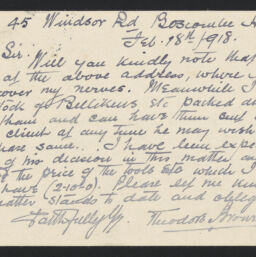 45 Windsor Rd Boscombe
Feb. 18th/1918.
Sir. Will you kindly note that
at the above address, where
over my nerves. Meanwhile I
of Bellikens etc packed
and can have them sent
client at any time he may wish
same. I have been
of his decision in this matter an
of the price of the tools etc which I
have (2-10-0). Please let me know
matter stands to date and oblige
Faithfully
Theodore Brown